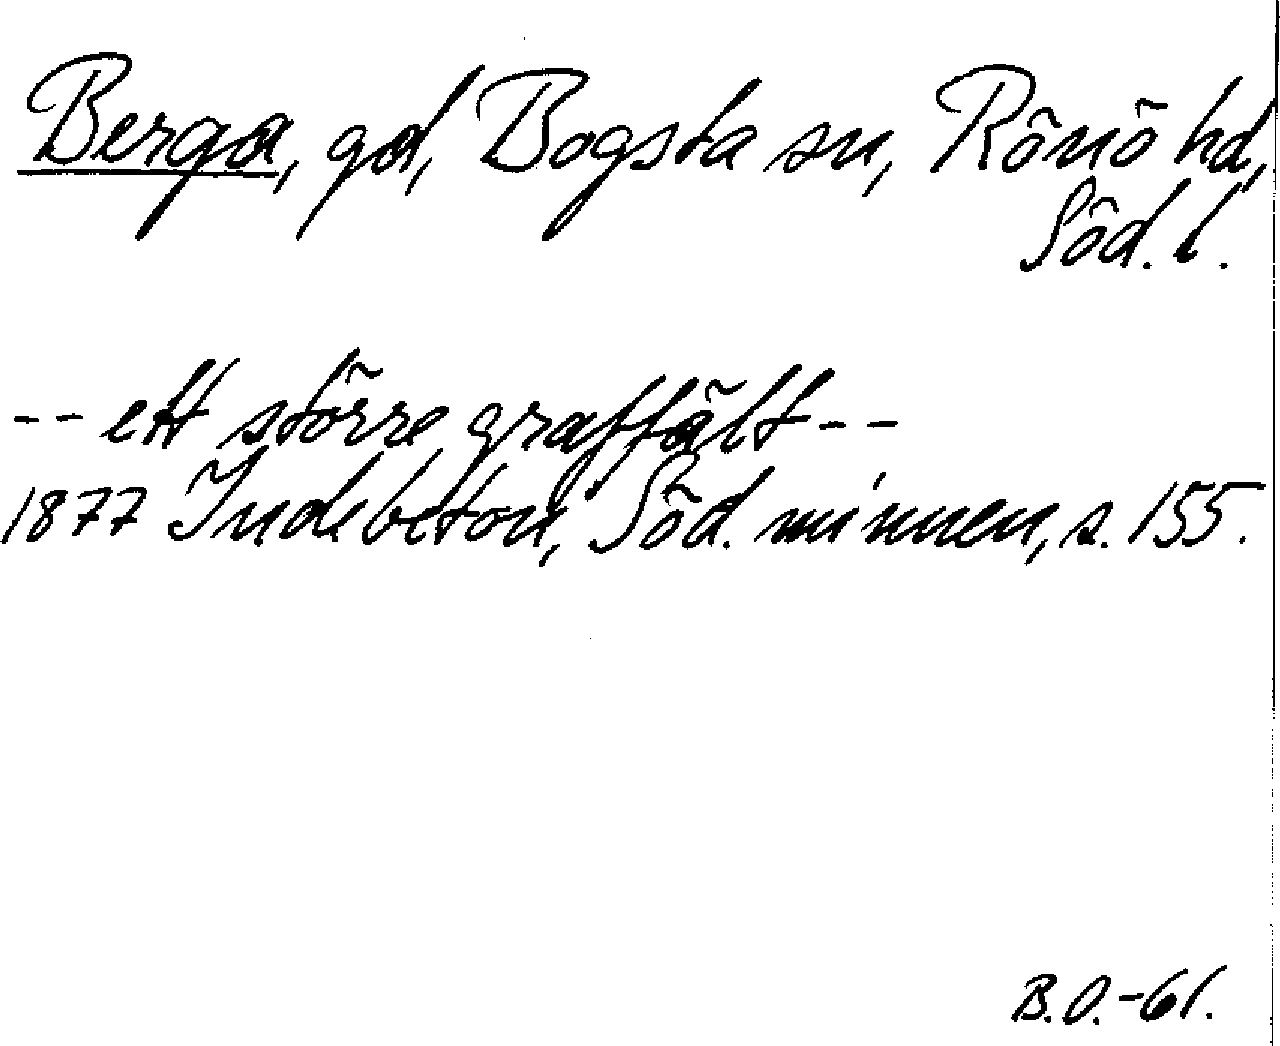 Berga, gd, Bogsta sn, Rönö hd,
Söd. l.
-- ett större graffält --
1877 Indebetou, Söd. minnen, s. 155.
B.O.-61.